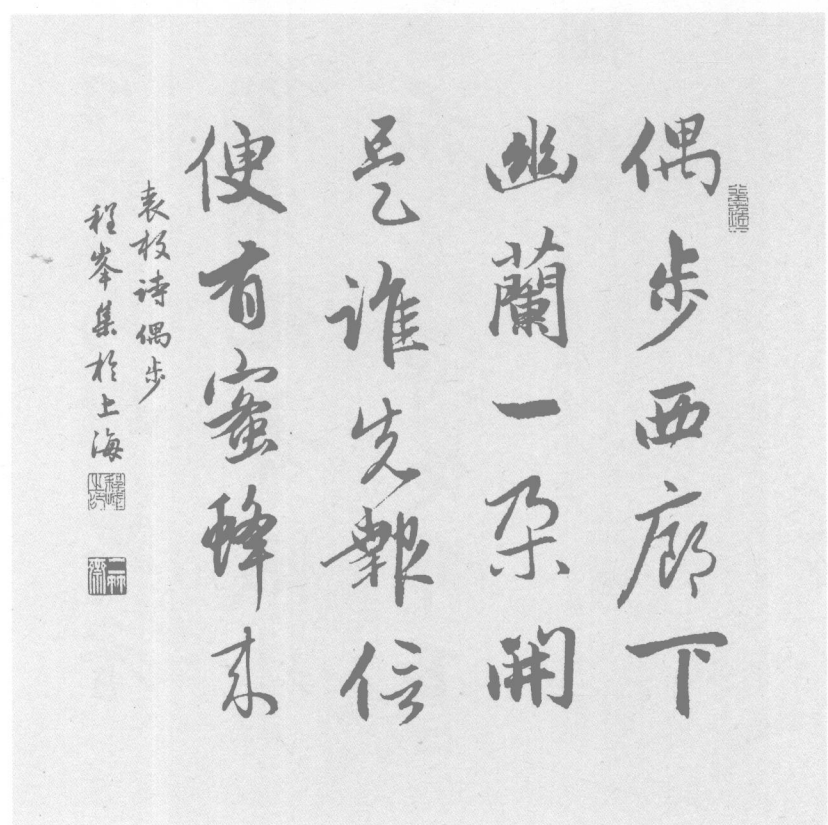 偶步西廊下
幽蘭一朵開
是誰先報信
便有蜜蜂来
袁枚诗偶步
程峯集於上海